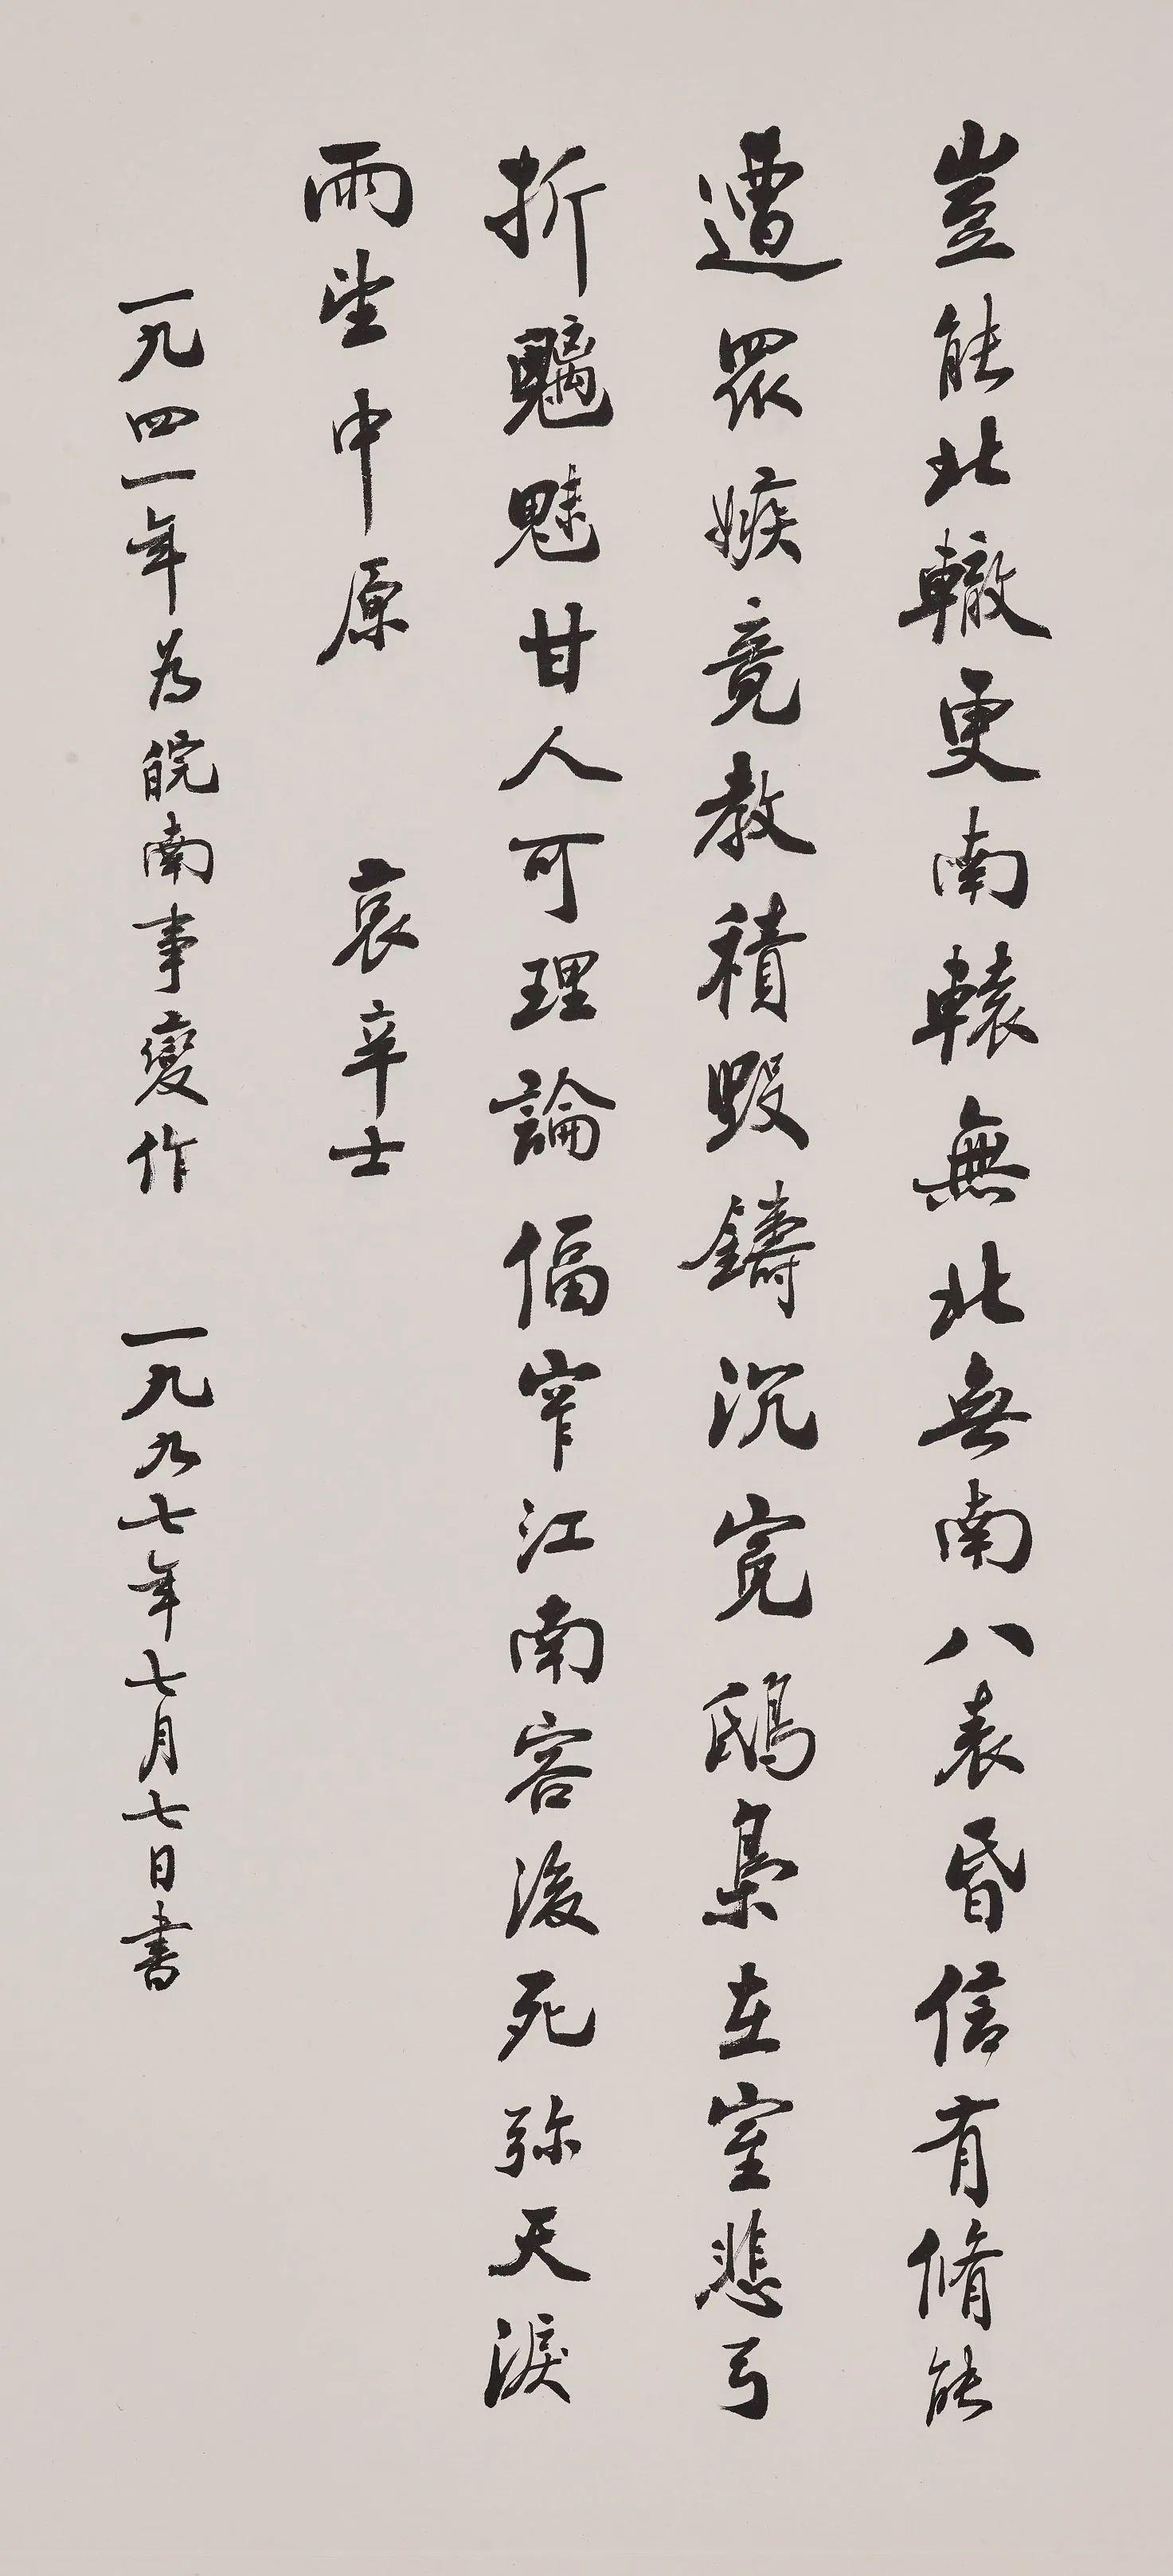 豈能北轍更南轅無北無南八表昏信有脩能
遭眾嫉竟教積毀鑄沉冤鴟梟在室悲弓
折魑魅甘人可理論偪窄江南容後死弥天淚
雨望中原　哀辛士
一九四一年為皖南事變作　一九九七年七月七日書